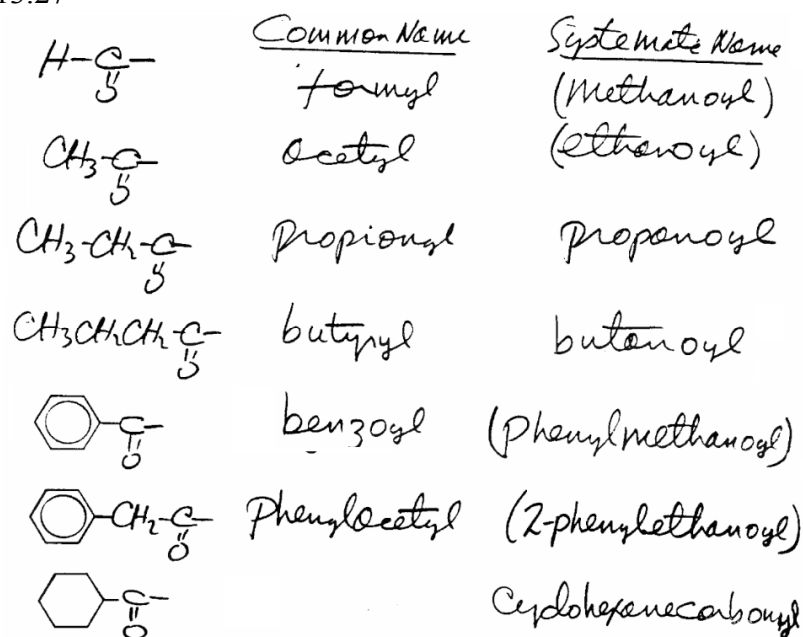 13.27
Common Name Systematic Name
H-C- formyl (methanoyl)
O
CH3-C- acetyl (ethanoyl)
O
CH3-CH2-C- propionyl propanoyl
O
CH3CH2CH2-C- butyryl butanoyl
O
-C- benzoyl (phenylmethanoyl)
O
-CH2-C- Phenylacetyl (2-phenylethanoyl)
O
-C- Cyclohexanecarbonyl
O